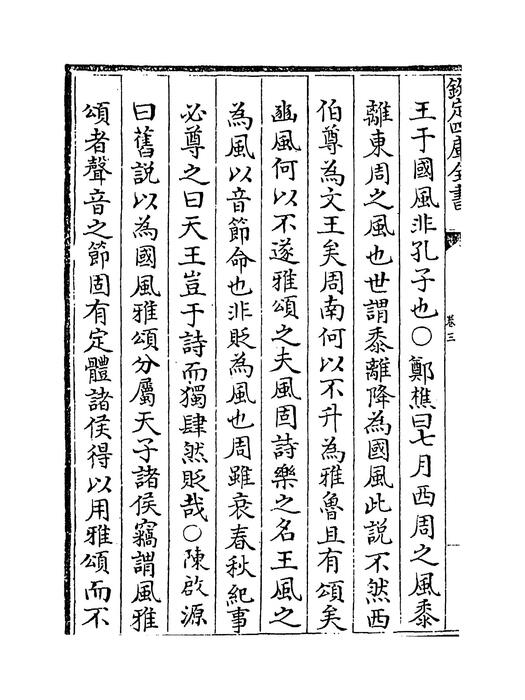 欽定四庫全書
卷三
王于國風非孔子也○鄭樵曰七月西周之風黍
離東周之風也世謂黍離降為國風此說不然西
伯尊為文王矣周南何以不升為雅魯且有頌矣
豳風何以不遂雅頌之夫風固詩樂之名王風之
為風以音節命也非貶為風也周雖衰春秋紀事
必尊之曰天王豈于詩而獨肆然貶哉○陳啟源
曰舊說以為國風雅頌分屬天子諸侯竊謂風雅
頌者聲音之節固有定體諸侯得以用雅頌而不